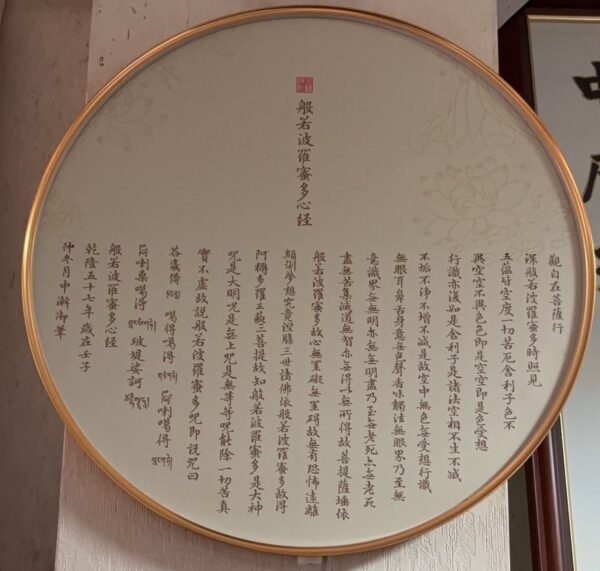 般若波羅蜜多心经
觀自在菩薩行
深般若波羅蜜多時照見
五蕴皆空度一切苦厄舍利子色不
異空空不異色色即是空空即是色受想
行識亦復如是舍利子是諸法空相不生不滅
不垢不淨不增不減是故空中無色無受想行識
無眼耳鼻舌身意無色聲香味觸法無眼界乃至無
意識界無無明亦無無明盡乃至無老死亦無老死
盡無苦集滅道無智亦無得以無所得故菩提薩埵依
般若波羅蜜多故心無罣礙無罣碍故無有恐怖遠離
顛倒夢想究竟涅槃三世諸佛依般若波羅蜜多故得
阿耨多羅三藐三菩提故知般若波羅蜜多是大神
咒是大明咒是無上咒是無等等咒能除一切苦真
實不虛故說般若波羅蜜多咒即說咒曰
答爾達 噶得噶得
噶得 巴喇噶得
巴喇桑噶得 玻堤娑訶
般若波羅蜜多心经
乾隆五十七年歲在壬子
仲冬月中澣御筆
中